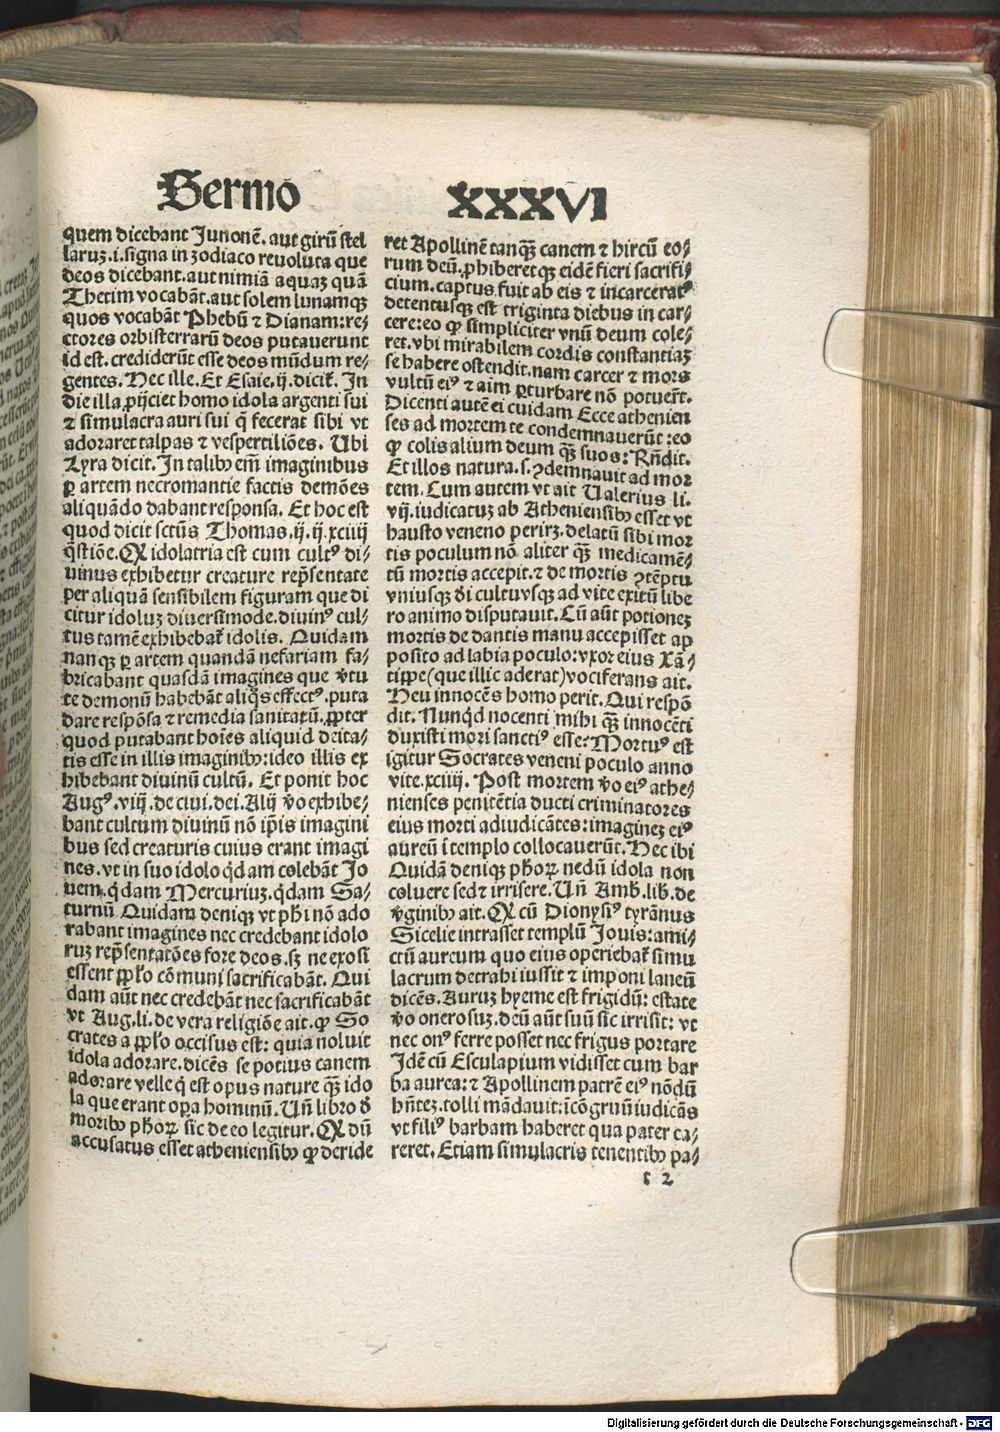 Sermo XXXVI
quem dicebant Junonē. aut girū stel
laruꝫ .i. signa in zodiaco reuoluta que
deos dicebant. aut nimiā aquaꝫ quā
Thetim vocabāt. aut solem lunamqꝫ
quos vocabāt Phebū ⁊ Dianam: re⸗
ctores orbisterrarū deos putauerunt
id est. crediderūt esse deos mūdum re⸗
gentes. Hec ille. Et Esaie. ij. dicit̄. In
die illa ꝓijciet homo idola argenti sui
⁊ simulacra auri sui q̄ fecerat sibi vt
adoraret talpas ⁊ vespertiliōes. Ubi
Lyra dicit. In talibꝰ em̄ imaginibus
ꝑ artem necromantie factis demōes
aliquādo dabant responsa. Et hoc est
quod dicit sctūs Thomas. ij. ij. xciiij
q̄stiōe. Qꝛ idolatria est cum cultꝰ di⸗
uinus exhibetur creature rep̄sentate
per aliquā sensibilem figuram que di
citur idoluꝫ diuersimode. diuinꝰ cul⸗
tus tamē exhibebat̄ idolis. Quidam
nanqꝫ ꝑ artem quandā nefariam fa⸗
bricabant quasdā imagines que v̓tu
te demonū habebāt aliq̄s effectꝰ. puta
dare respōsa ⁊ remedia sanitatū. ꝓpter
quod putabant hoīes aliquid deita⸗
tis esse in illis imaginibꝰ: ideo illis ex
hibebant diuinū cultū. Et ponit hoc
Augꝰ. viij. de ciui. dei. Alij v̓o exhibe⸗
bant cultum diuinū nō ip̄is imagini
bus sed creaturis cuius erant imagi
nes. vt in suo idolo q̇dam colebāt Jo
uem. q̇dam Mercuriuꝫ. q̇dam Sa⸗
turnū Quidam deniqꝫ vt pħi nō ado
rabant imagines nec credebant idolo
ruꝫ rep̄sentatōes fore deos. sꝫ ne exosi
essent ꝓp̄lo cōmuni sacrificabāt. Qui
dam aūt nec credebāt nec sacrificabāt
vt Aug. li. de vera religiōe ait. ꝙ So
crates a ꝓp̄lo occisus est: quia noluit
idola adorare. dicēs se potius canem
adorare velle q̇ est opus nature qꝫ̄ ido
la que erant oꝑa hominū. Uñ libro d̓
moribꝰ pħoꝝ sic de eo legitur. Qꝛ dū
accusatus esset atheniensibꝰ ꝙ deride
ret Apollinē tanqꝫ̄ canem ⁊ hircū eo⸗
rum deū. ꝓhiberetqꝫ eidē fieri sacrifi⸗
cium. captus fuit ab eis ⁊ incarceratꝰ
detentusqꝫ est triginta diebus in car⸗
cere: eo ꝙ simpliciter vnū deum cole⸗
ret. vbi mirabilem cordis constantiaꝫ
se habere ostendit. nam carcer ⁊ mors
vultū eiꝰ ⁊ aīm ꝑturbare nō potuer̄t.
Dicenti autē ei cuidam Ecce athenien
ses ad mortem te condemnauerūt: eo
ꝙ colis alium deum qꝫ̄ suos: Rn̄dit.
Et illos natura .s. ↄdemnauit ad mor
tem. Cum autem vt ait Ualerius li.
vij. iudicatuꝫ ab Atheniensibꝰ esset vt
hausto veneno perirꝫ. delatū sibi mor
tis poculum nō aliter qꝫ̄ medicamē⸗
tū mortis accepit. ⁊ de mortis ↄtēptu
vniusqꝫ d̓i cultuvsqꝫ ad vite exitū libe
ro animo disputauit. Cū aūt potioneꝫ
mortis de dantis manu accepisset ap
posito ad labia poculo: vxor eius Xā⸗
tippe (que illic aderat) vociferans ait.
Heu innocēs homo perit. Qui respō
dit. Nunq̇d nocenti mihi qꝫ̄ innocēti
duxisti mori sanctiꝰ esse: Mortuꝰ est
igitur Socrates veneni poculo anno
vite. xciiij. Post mortem v̓o eiꝰ athe⸗
nienses penitētia ducti criminatores
eius morti adiudicātes: imagineꝫ eiꝰ
aureū ī templo collocauerūt. Hec ibi
Quidā deniqꝫ pħoꝝ nedū idola non
coluere sed ⁊ irrisere. Uñ Amb. lib. de
v̓ginibꝰ ait. Qꝛ cū Dionysiꝰ tyrānus
Sicelie intrasset templū Jouis: ami⸗
ctū aureum quo eius operiebat̄ simu
lacrum detrahi iussit ⁊ imponi laneū
dicēs. Auruꝫ hyeme est frigidū: estate
v̓o onerosuꝫ. deū aūt suū sic irrisit: vt
nec onꝰ ferre posset nec frigus portare
Idē cū Esculapium vidisset cum bar
ba aurea: ⁊ Apollinem patrē eiꝰ nōdū
hn̄teꝫ. tolli mādauit: īcōgruū iudicās
vt filiꝰ barbam haberet qua pater ca⸗
reret. Etiam simulacris tenentibꝰ pa⸗
r 2
Digitalisierung gefördert durch die Deutsche Forschungsgemeinschaft - DFG